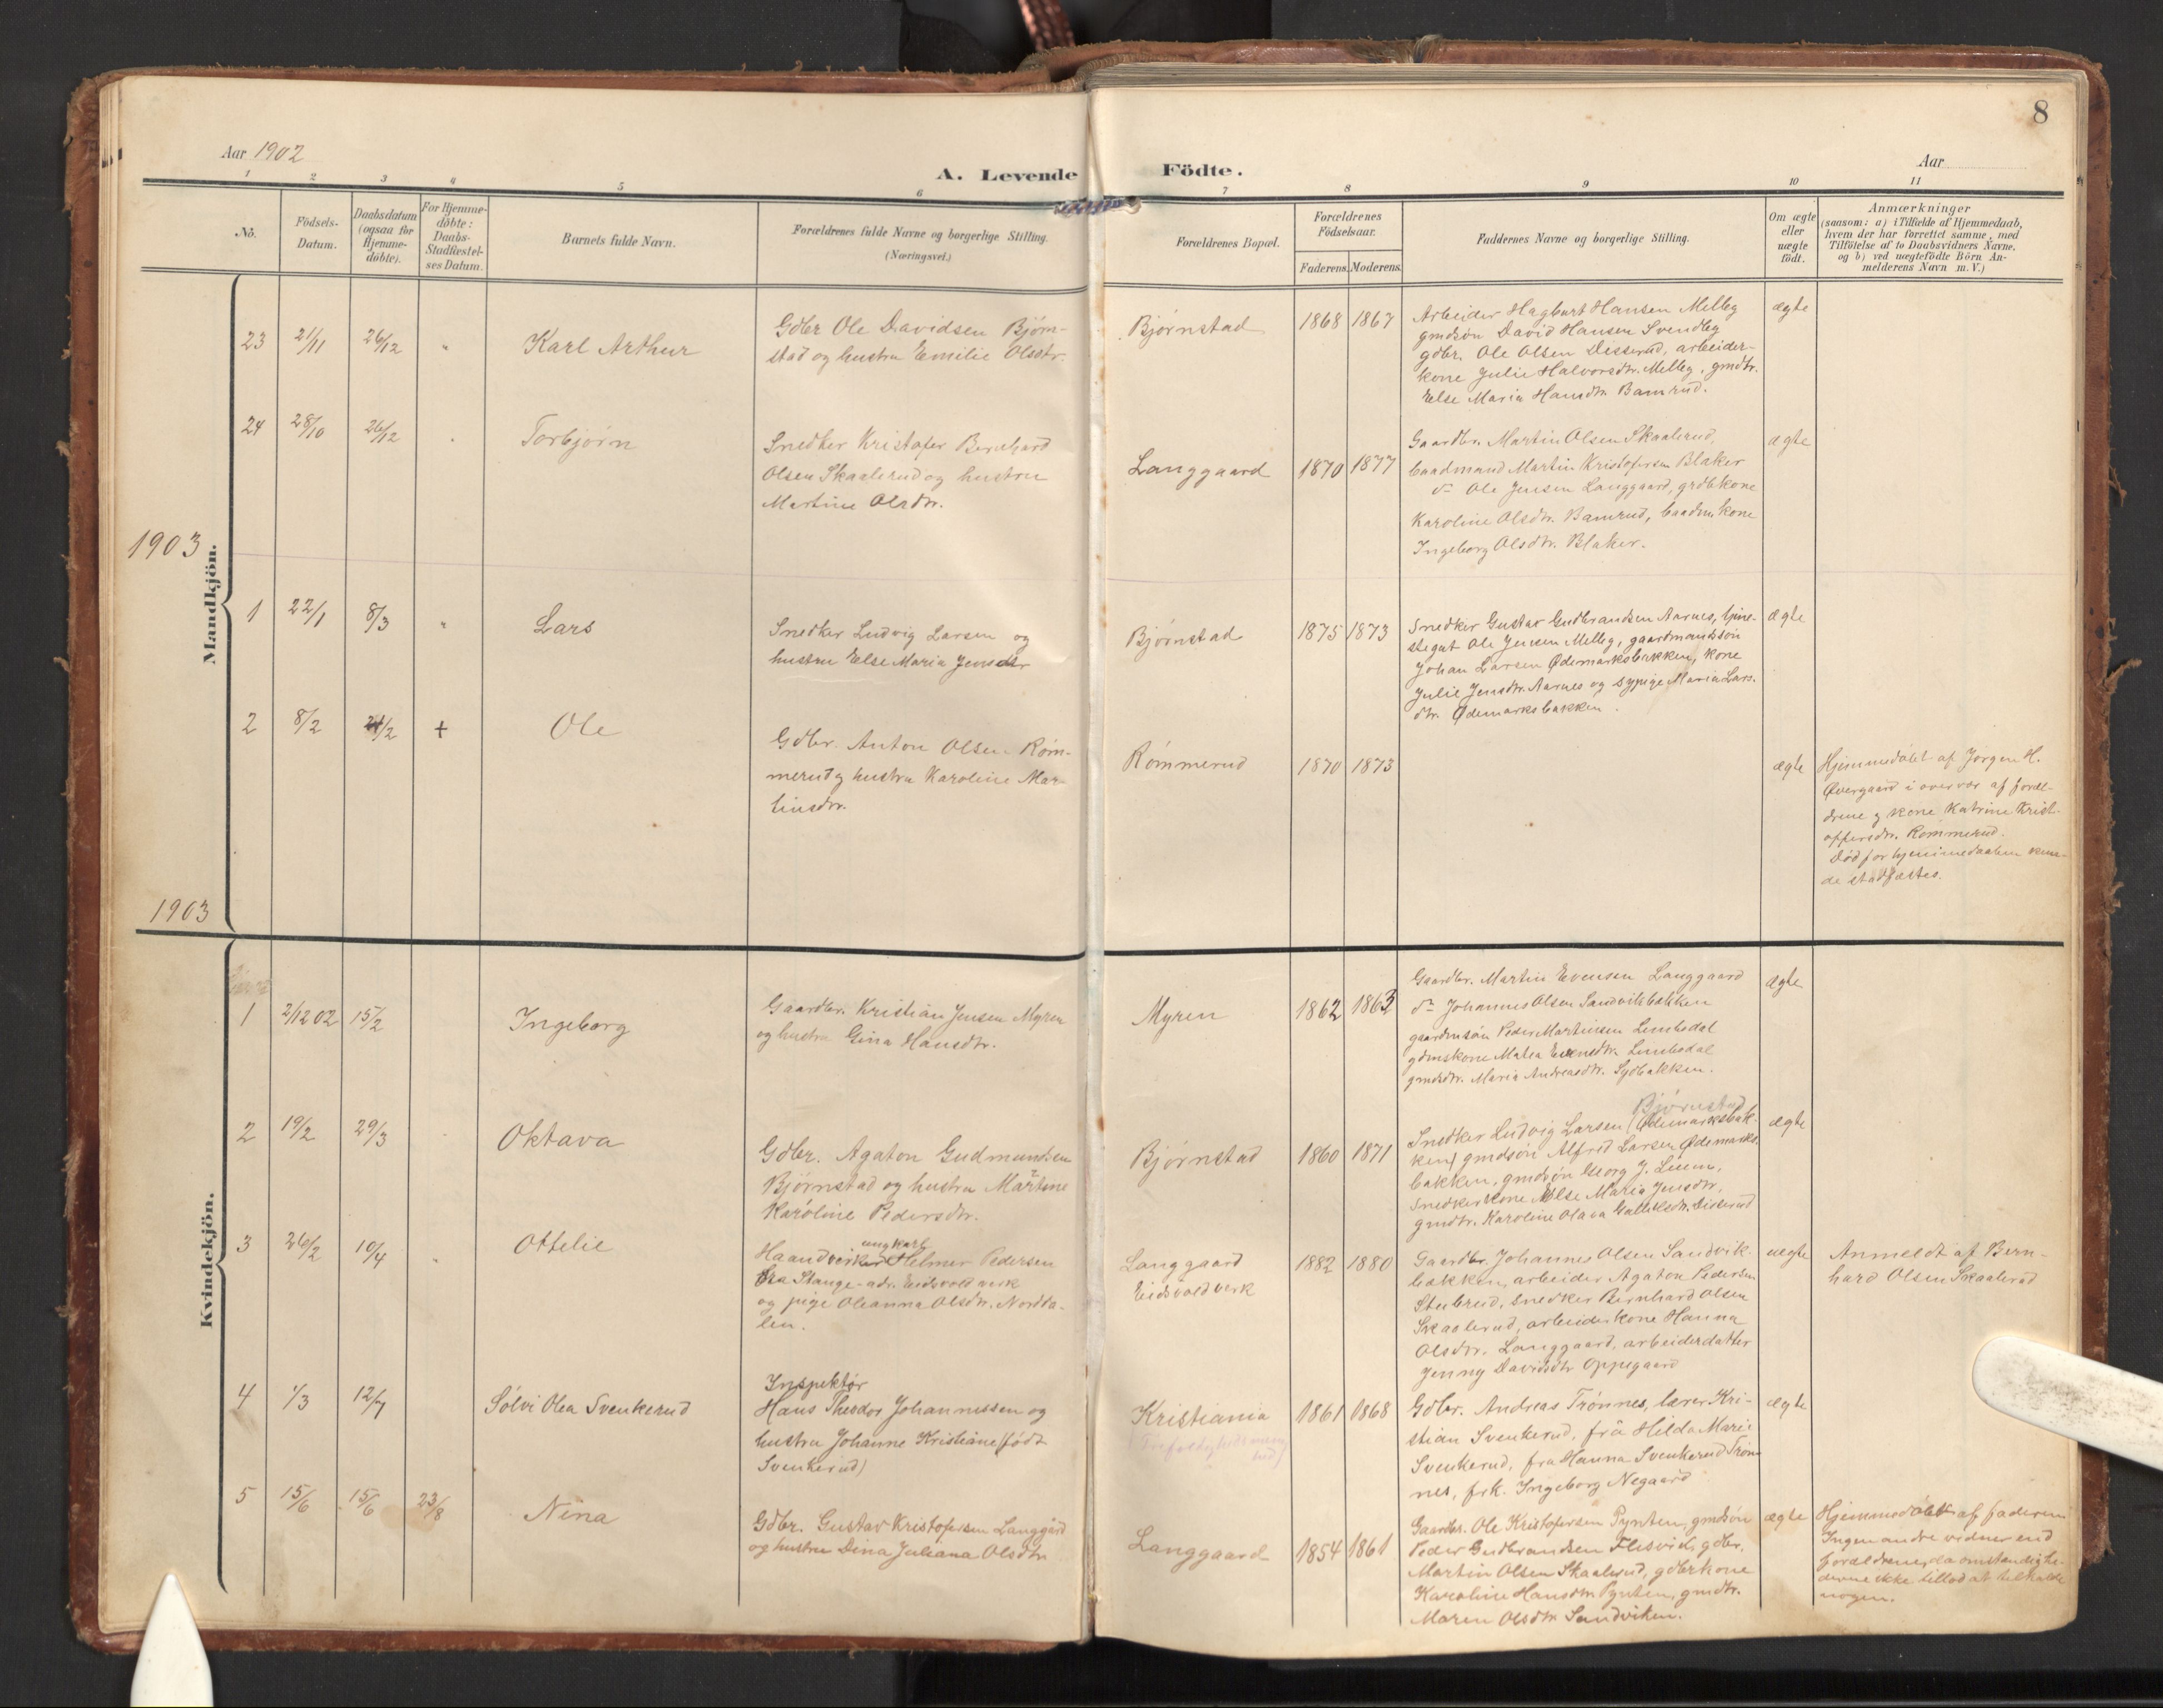 8
Aar 1902
A. Levende Födte.
Aar
1 2 3 4 5 6 7 8 9 10 11
Nò.
Födsels-
Datum.
Daabsdatum
(ogsaa for
Hjemme-
döbte).
For Hjemme-
döbte:
Daabs-
Stadfæstel-
ses Datum.
Barnets fulde Navn.
Forældrenes fulde Navne og borgerlige Stilling.
(Næringsvei.)
Forældrenes Bopæl.
Forældrenes
Födselsaar.
Faderens. Moderens.
Faddernes Navne og borgerlige Stilling.
Om ægte
eller
uægte
födt.
Anmærkninger
(saasom: a) i Tilfælde af Hjemmedaab,
hvem der har forrettet samme, med
Tilföielse af to Daabsvidners Navne.
og b) ved uægtefödte Börn An-
melderens Navn m. V.)
Mandkjön.
23 21/11 26/12 " Karl Arthur
Gdbr Ole Davidsen Bjørn-
stad og hustru Emilie Olsdtr.
Bjørnstad 1868 1867
Arbeider Hagbart Hansen Melby
gmdsøn David Hansen Svendby
gdbr. Ole Olsen Disserud, arbeider-
kone Julie Halvorsdtr. Melby, gmdtr.
Else Maria Hansdtr. Bamrud.
ægte
24 28/10 26/12 Torbjørn
Snedker Kristofer Bernhard
Olsen Skaalerud og hustru
Martine Olsdtr.
Langgaard 1870 1877
Gaardbr. Martin Olsen Skaalerud,
baadmand Martin Kristofersen Blaker
dº Ole Jensen Langgaard, grdbkone
Karoline Olsdtr. Bamrud, baadm. kone
Ingeborg Olsdtr. Blaker.
ægte
1903
1 22/1 8/3 " Lars
Snedker Ludvig Larsen og
hustru Else Maria Jensdtr
Bjørnstad 1875 1873
Snedker Gustav Gudbrandsen Aarnes, tjene-
stegut Ole Jensen Melby, gaardmandssøn
Johan Larsen Ødemarksbakken, kone
Julie Jensdtr. Aarnes og sypige Maria Lars-
dtr. Ødemarksbakken.
ægte
2 8/2 /2 + Ole
Gdbr. Anton Olsen Røm-
merud og hustru Karoline Mar-
tinsdtr.
Rømmerud 1870 1873
ægte
Hjemmedøbt af Jørgen H.
Øvergaard i overvær af foræl-
drene og kone Katrine Krist-
offersdtr. Rømmerud.
Død før hjemmedaaben kun-
de stadfæstes.
1903
Kvindekjön.
1 2/12 02 15/2 Ingeborg
Gaardbr. Kristian Jensen Myren
og hustru Gina Hansdtr.
Myren 1862 1863
Gaardbr. Martin Evensen Langgaard
dº Johannes Olsen Sandvikbakken
gaardmsøn Peder Martinsen Limbodal
gdmskone Matea Evensdtr. Limbodal
gmdsdtr. Maria Andreasdtr. Sydbakken.
ægte
2 19/2 29/3 Oktava
Gdbr. Agaton Gudmundsen
Bjørnstad og hustru Martine
Karoline Pedersdtr.
Bjørnstad 1860 1871
Bjørnstad
Snedker Ludvig Larsen (Ødemarksbak-
ken) gmdsøn Alfred Larsen Ødemarks-
bakken, gmdsøn Georg J.
Snedkerkone Else Maria Jensdtr,
gmdtr. Karoline Olava Disserud
ægte
3 26/2 10/4 " Ottelie
ungkarl
Haandverker Helmer Pedersen
fra Stange - adr. Eidsvold verk
og pige Oleanna Olsdtr. Nordda-
len.
Langgaard
Eidsvold verk
1882 1880
Gaardbr. Johannes Olsen Sandvik-
bakken, arbeider Agaton Pedersen
Stubrud, Snedker Bernhard Olsen
Skaalerud, arbeiderkone Hanna
Olsdtr. Langgaard, arbeiderdatter
Jenny Davidsdtr Oppegaard
uægte
Anmeldt af Bern-
hard Olsen Skaalerud
4 1/3 12/7 Sølvi Olea Svenkerud
Inspektør
Hans Theodor Johannessen og
hustru Johanne Kristiane (født
Svenkerud)
Kristiania
(Trefoldigheds menig-
hed)
1861 1868
Gdbr. Andreas Trønnes, lærer Kri-
stian Svenkerud, fru Hilda Marie
Svenkerud, fru Hanna Svenkerud Trøn-
nes, frk. Ingeborg Negaard
ægte
5 15/6 15/6 23/8 Nina
Gdbr. Gustav Kristofersen Langgård
og hustru Dina Juliana Olsdtr
Langgaard 1854 1861
Gaardbr. Ole Kristofersen Pynten, gmdsøn
Peder Gudbrandsen Flesvik, gdbr.
Martin Olsen Skaalerud, gdbrkone
Karoline Hansdtr Pynten, gmdtr.
Maren Olsdtr Sandviken.
ægte
Hjemmedøbt af faderen
Ingen andre vidner end
forældrene, da omstændighe-
derne ikke tillod at tilkalde
nogen.